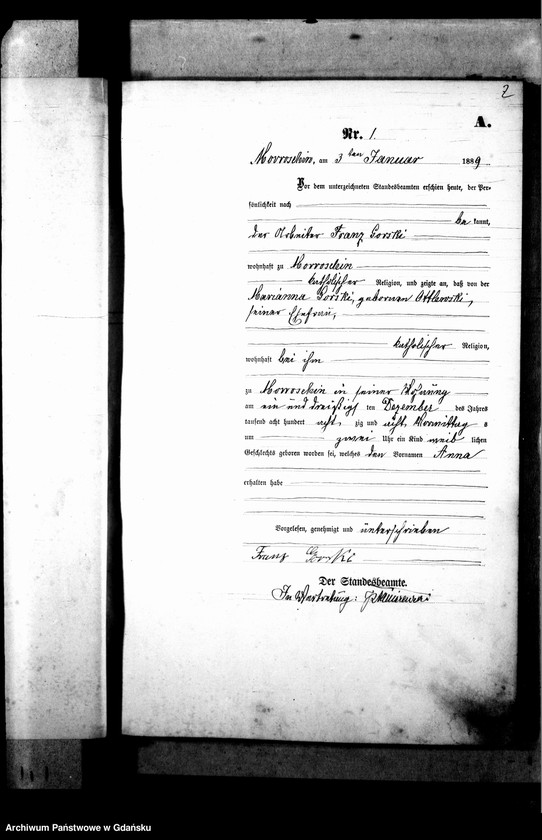 2
A.
Nr. 1.
Morroschin, am 3ten Januar 1889
Vor dem unterzeichneten Standesbeamten erschien heute, der Per-
sönlichkeit nach
be kannt,
der Arbeiter Franz Gorski
wohnhaft zu Morroschin
katholischer Religion, und zeigte an, daß von der
Marianna Gorski, geborenen Ottlewski,
seiner Ehefrau,
katholischer Religion,
wohnhaft bei ihm
zu Morroschin in seiner Wohnung
am ein und dreißigsten Dezember des Jahres
tausend acht hundert acht zig und acht, Vormittag s
um zwei Uhr ein Kind weib lichen
Geschlechts geboren worden sei, welches den Vornamen Anna
erhalten habe
Vorgelesen, genehmigt und unterschrieben
Franz Gorski
Der Standesbeamte.
In Vertretung:
Archiwum Państwowe w Gdańsku